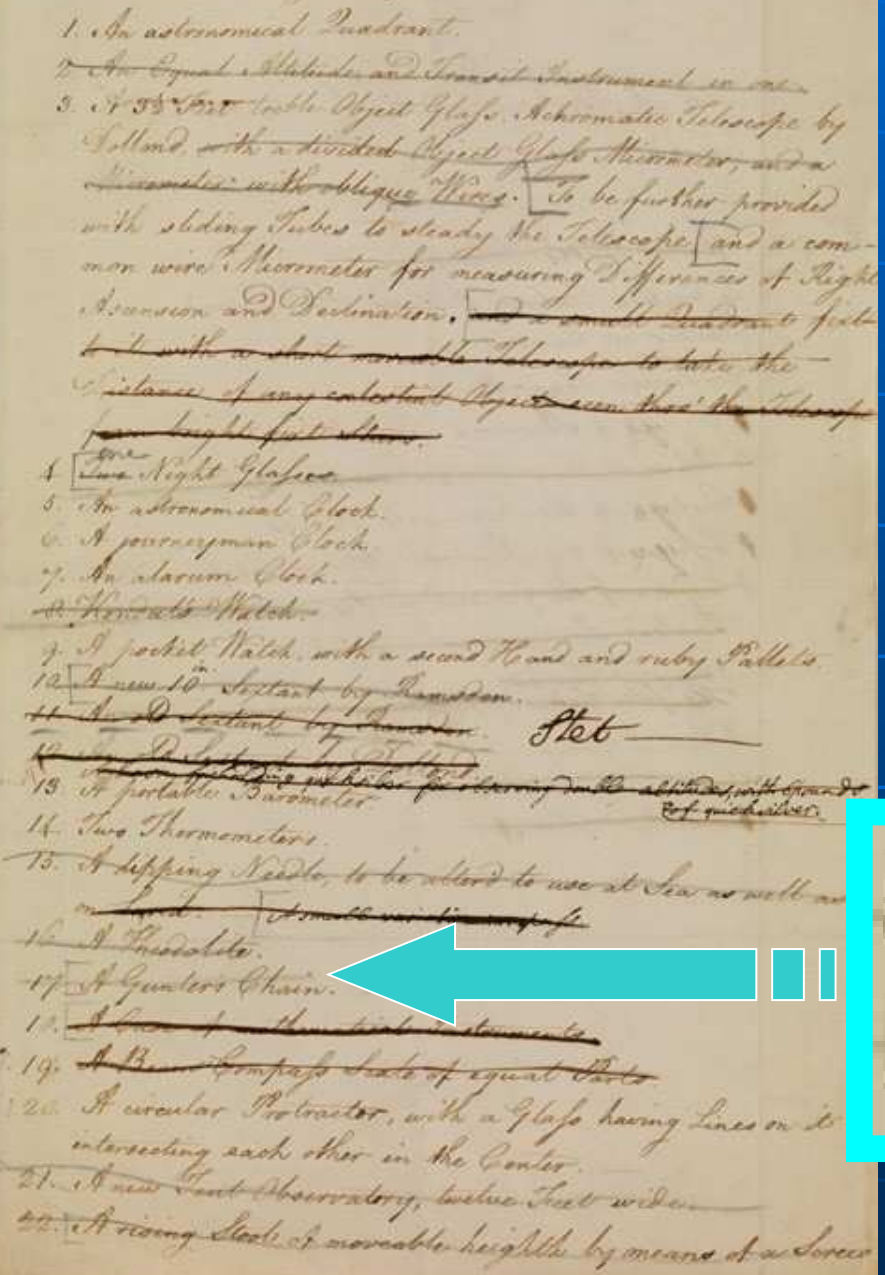 1. An astronomical Quadrant.
2. An Equal Altitude and Transit Instrument in one.
3. A 3½ Feet treble Object Glass Achromatic Telescope by
Dollond, with a divided Object Glass Micrometer, and a
Micrometer with oblique Wires. To be further provided
with sliding Tubes to steady the Telescope and a com-
mon wire Micrometer for measuring Differences of Right
Ascension and Declination. and a small Quadrant fixt
to it with a short moveable Telescope to take the
distance of any celestial Object seen thro' the Telescope
bright fixt Stars.
one
4 Two Night Glasses.
5. An astronomical Clock.
6. A journeyman Clock.
7. An alarum Clock.
8. Kendal's Watch.
9. A pocket Watch, with a second Hand and ruby Pallets.
10. A new 10 in Sextant by Ramsden.
11. An old Sextant by Ramsden. Stet
12. Sextant by
for holding quicksilver for observing double altitudes, with 6 pounds
of quicksilver.
13 A portable Barometer
14. Two Thermometers.
15. A dipping Needle, to be alterd to use at Sea as well as
on Land. A small compass
16. A Theodolite.
17. A Gunters Chain.
18. A Case of mathematical Instruments.
19. A Beam Compass Scale of equal Parts
20. A circular Protractor, with a Glass having Lines on it
intersecting each other in the Center.
21. A new Tent Observatory, twelve Feet wide.
22. A rising Stool of moveable heighth by means of a Screw